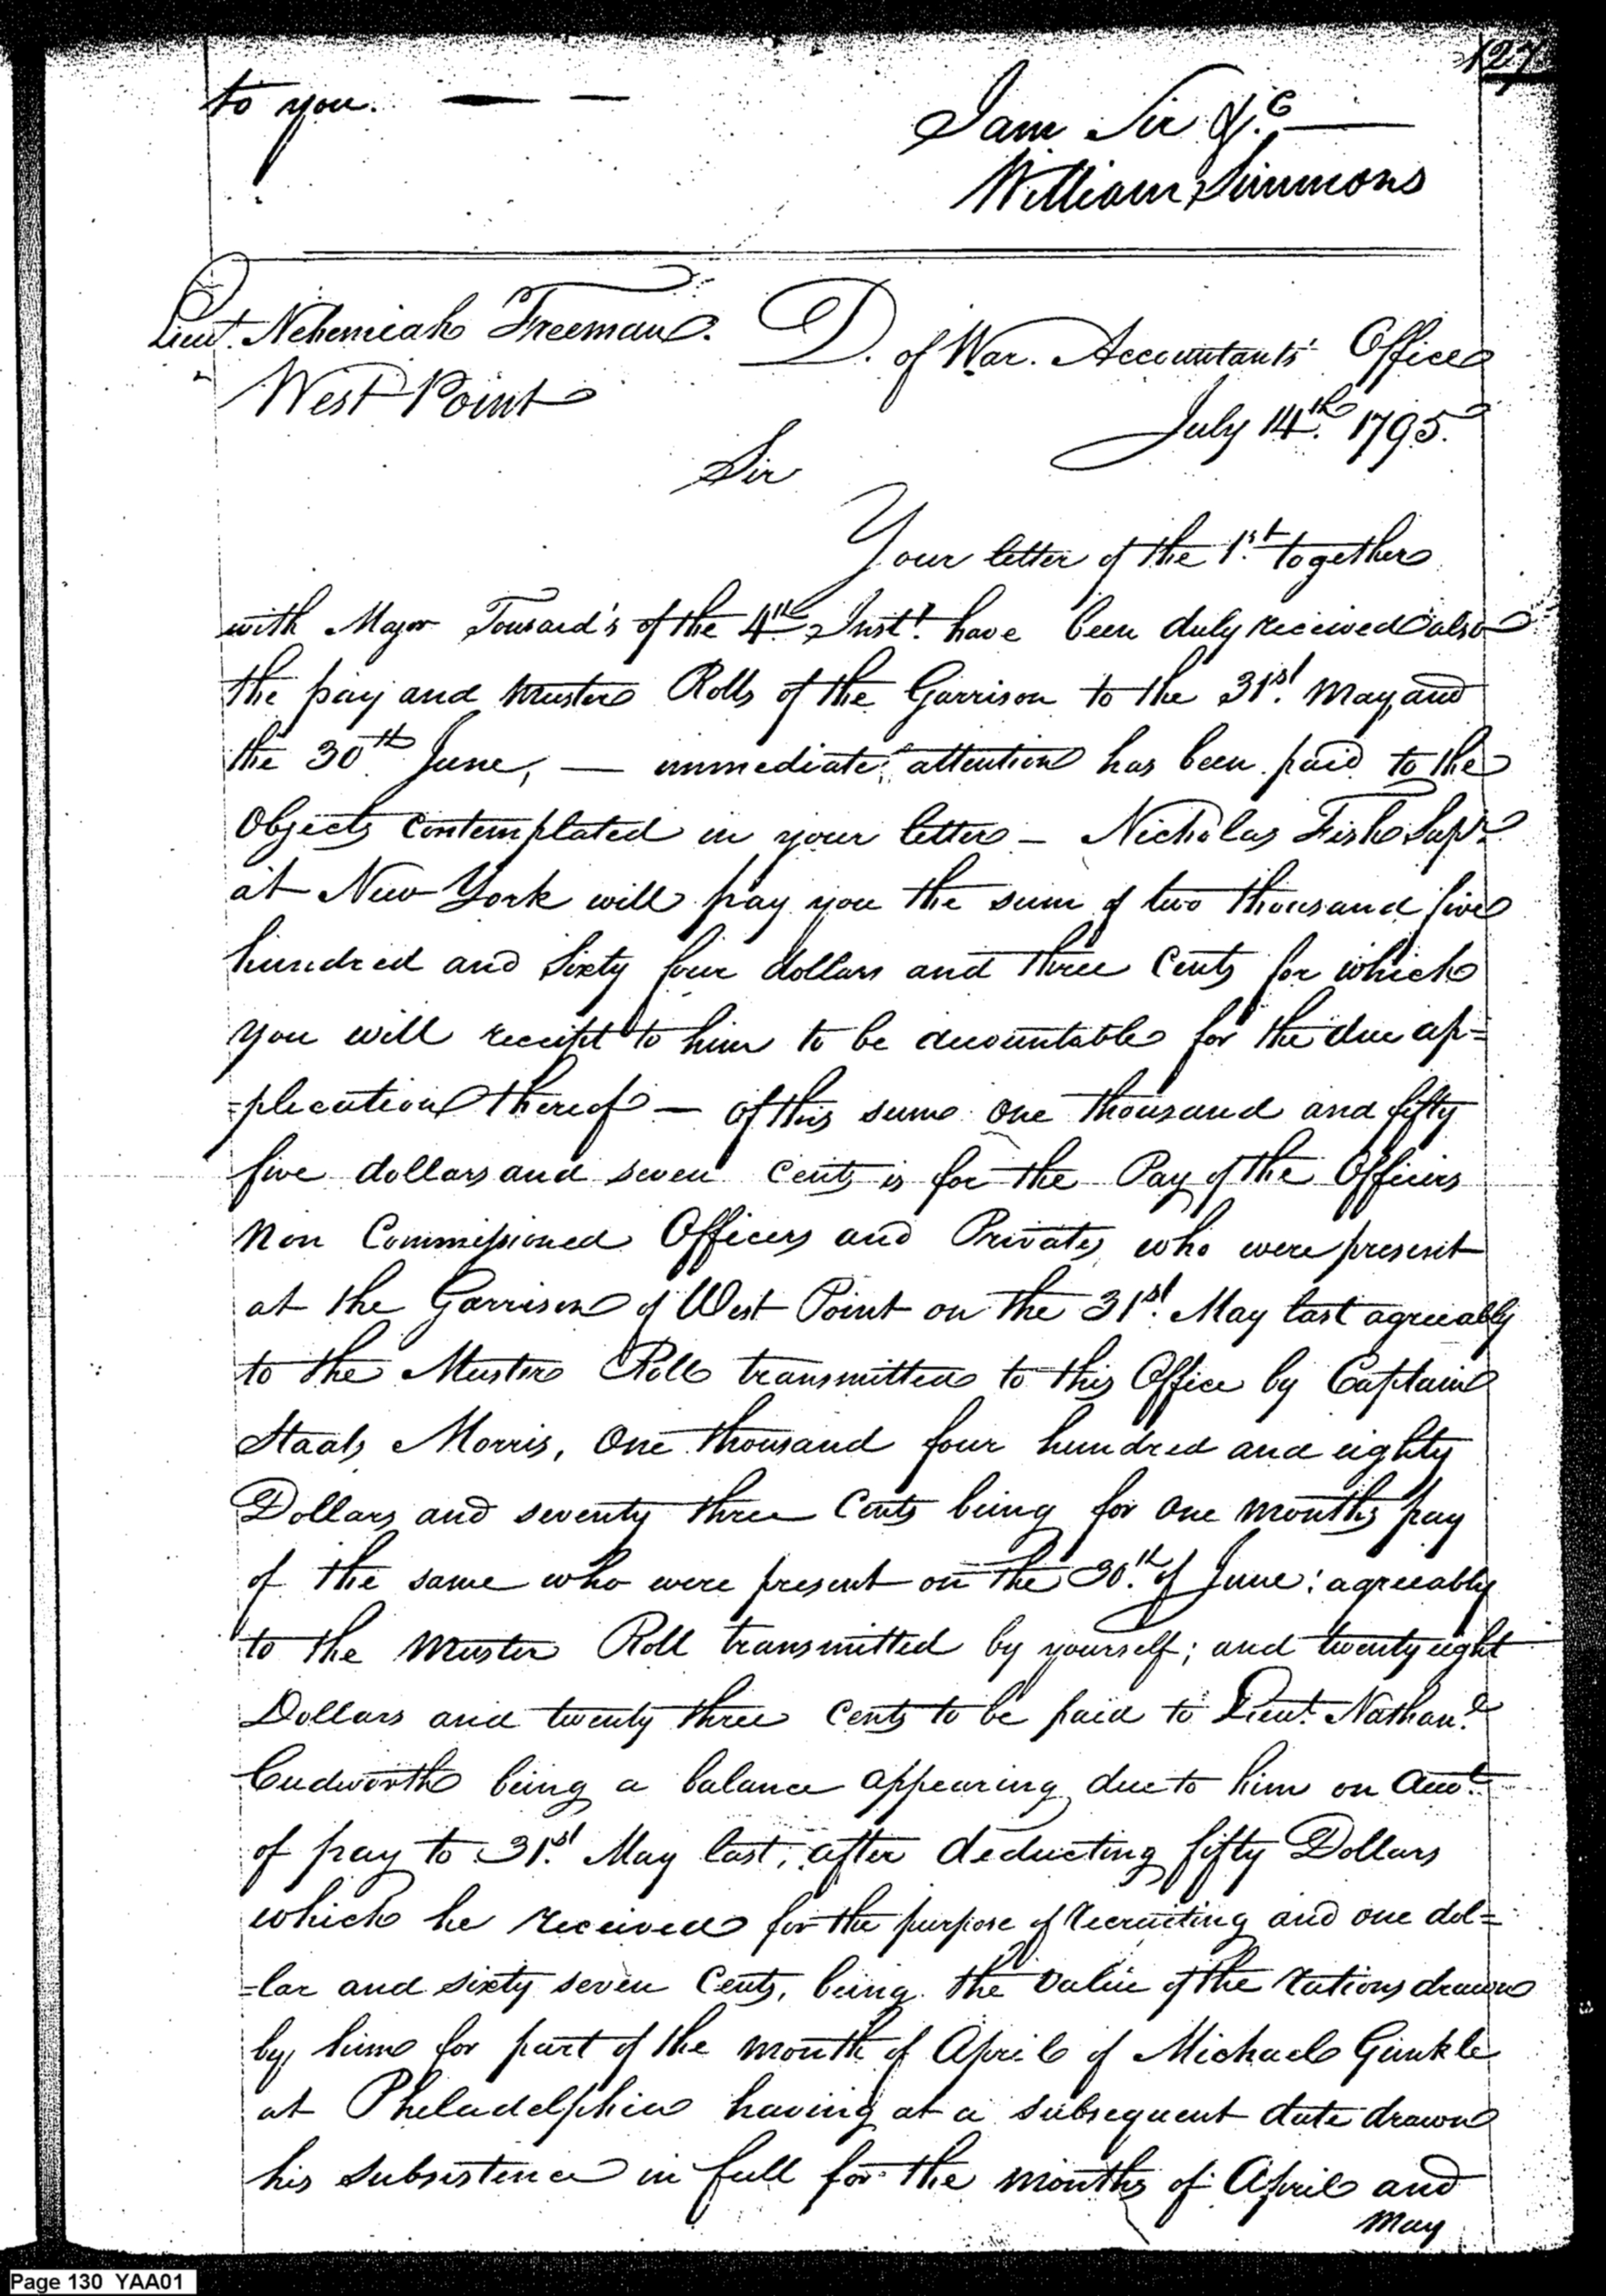 127
to you. — —
I am Sir &c —
William Simmons
Lieut. Nehemiah Freeman.
West Point
D. of War. Accountants' Office
July 14th. 1795.
Sir
Your letter of the 1st. together
with Major Tousard's of the 4th Inst. have been duly received also
the pay and muster Rolls of the Garrison to the 31st. May, and
the 30th June, — immediate attention has been paid to the
Objects contemplated in your letter — Nicholas Fish Supr.
at New York will pay you the sum of two thousand five
hundred and sixty four dollars and three Cents for which
you will receipt to him to be accountable for the due ap=
=plication thereof — of this sum one thousand and fifty
five dollars and seven Cents is for the Pay of the Officers
Non Commissioned Officers and Privates who were present
at the Garrison of West Point on the 31st. May last agreeably
to the Muster Roll transmitted to this Office by Captain
Staats Morris, One thousand four hundred and eighty
Dollars and seventy three Cents being for one months pay
of the same who were present on the 30th. of June; agreeably
to the Muster Roll transmitted by yourself; and twenty eight
Dollars and twenty three Cents to be paid to Lieut. Nathanl.
Cudworth being a balance appearing due to him on Acct.
of pay to 31st. May last, after deducting fifty Dollars
which he received for the purpose of recruiting and one dol=
=lar and sixty seven Cents, being the value of the rations drawn
by him for part of the month of April of Michael Gunkle
at Philadelphia having at a subsequent date drawn
his subsistence in full for the months of April and
May
Page 130 YAA01